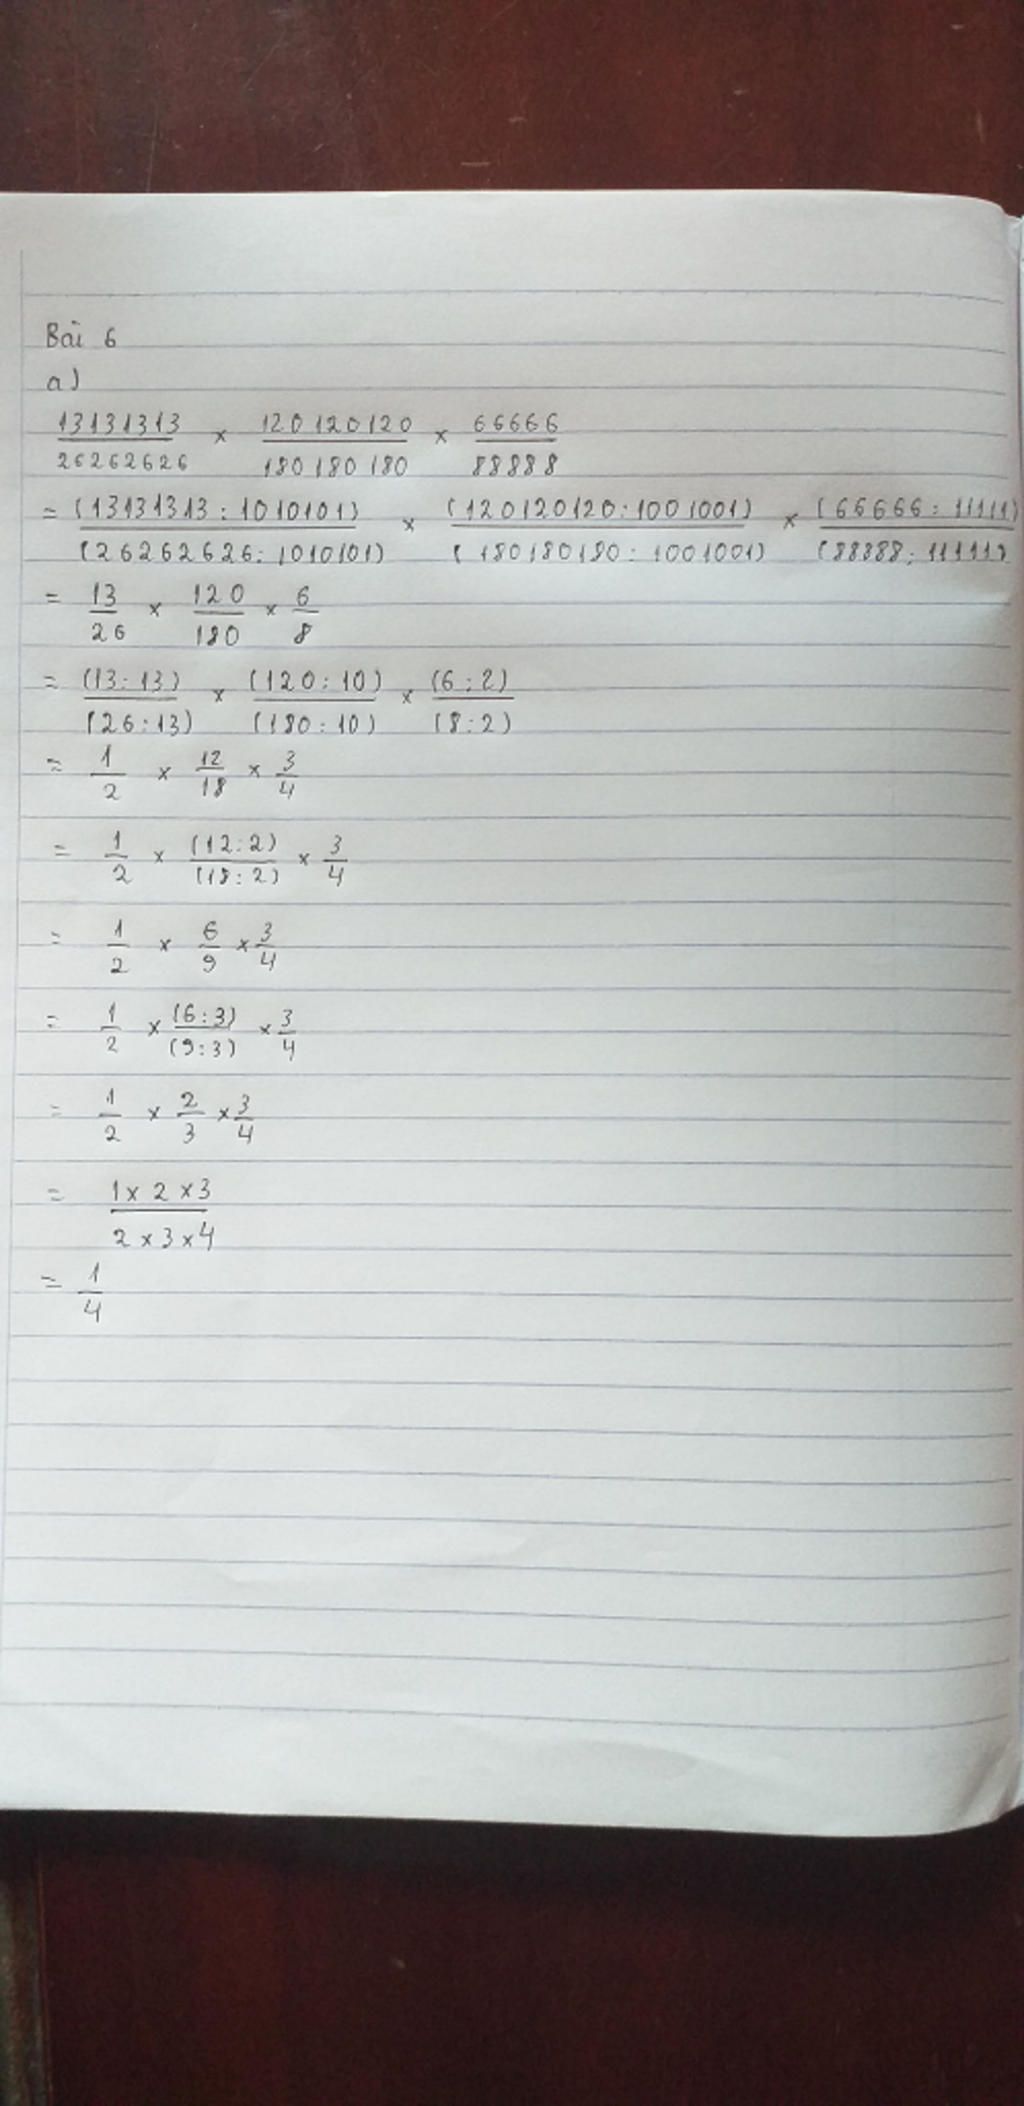 Bài 6
a)
13131313/26262626 × 120120120/180180180 × 66666/88888
= (13131313:1010101)/(26262626:1010101) × (120120120:1001001)/(180180180:1001001) × (66666:11111)/(88888:11111)
= 13/26 × 120/180 × 6/8
= (13:13)/(26:13) × (120:10)/(180:10) × (6:2)/(8:2)
= 1/2 × 12/18 × 3/4
= 1/2 × (12:2)/(18:2) × 3/4
= 1/2 × 6/9 × 3/4
= 1/2 × (6:3)/(9:3) × 3/4
= 1/2 × 2/3 × 3/4
= 1×2×3/2×3×4
= 1/4